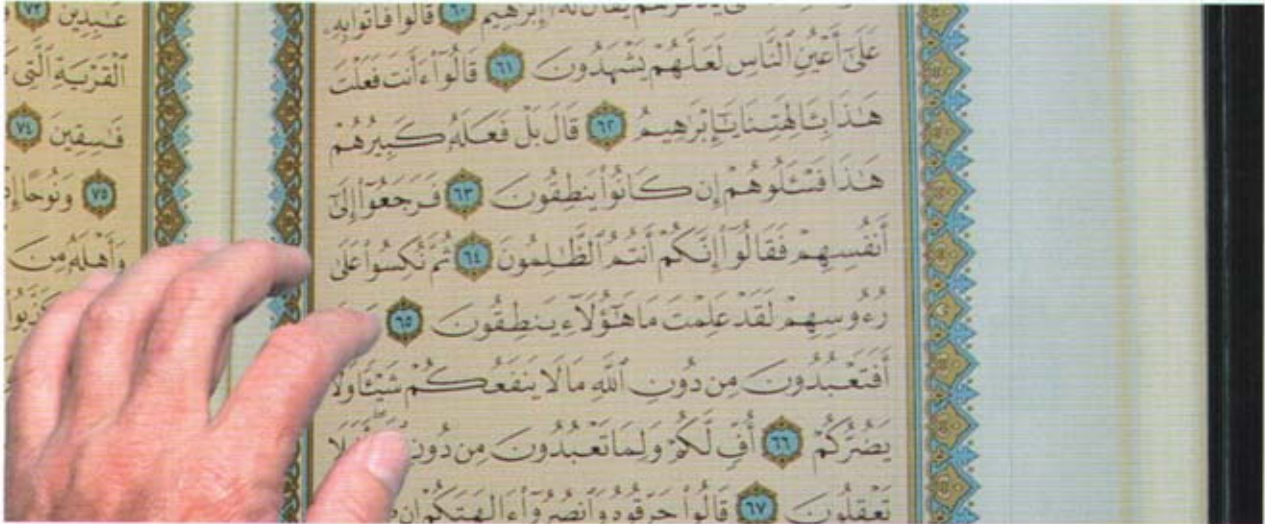 يَذْكُرُهُمْ يُقَالُ لَهُۥٓ إِبْرَٰهِيمُ ٦٠ قَالُوا۟ فَأْتُوا۟ بِهِۦ
عَلَىٰٓ أَعْيُنِ ٱلنَّاسِ لَعَلَّهُمْ يَشْهَدُونَ ٦١ قَالُوٓا۟ ءَأَنتَ فَعَلْتَ
هَٰذَا بِـَٔالِهَتِنَا يَٰٓإِبْرَٰهِيمُ ٦٢ قَالَ بَلْ فَعَلَهُۥ كَبِيرُهُمْ
هَٰذَا فَسْـَٔلُوهُمْ إِن كَانُوا۟ يَنطِقُونَ ٦٣ فَرَجَعُوٓا۟ إِلَىٰٓ
أَنفُسِهِمْ فَقَالُوٓا۟ إِنَّكُمْ أَنتُمُ ٱلظَّٰلِمُونَ ٦٤ ثُمَّ نُكِسُوا۟ عَلَىٰ
رُءُوسِهِمْ لَقَدْ عَلِمْتَ مَا هَٰٓؤُلَآءِ يَنطِقُونَ ٦٥
أَفَتَعْبُدُونَ مِن دُونِ ٱللَّهِ مَا لَا يَنفَعُكُمْ شَيْـًٔا وَلَا
يَضُرُّكُمْ ٦٦ أُفٍّ لَّكُمْ وَلِمَا تَعْبُدُونَ مِن دُونِ
تَعْقِلُونَ ٦٧ قَالُوا۟ حَرِّقُوهُ وَٱنصُرُوٓا۟ ءَالِهَتَكُمْ إِن
عَٰبِدِينَ ٧٣
ٱلْقَرْيَةِ ٱلَّتِى
فَٰسِقِينَ ٧٤
٧٥ وَنُوحًا
وَأَهْلَهُۥ مِنَ